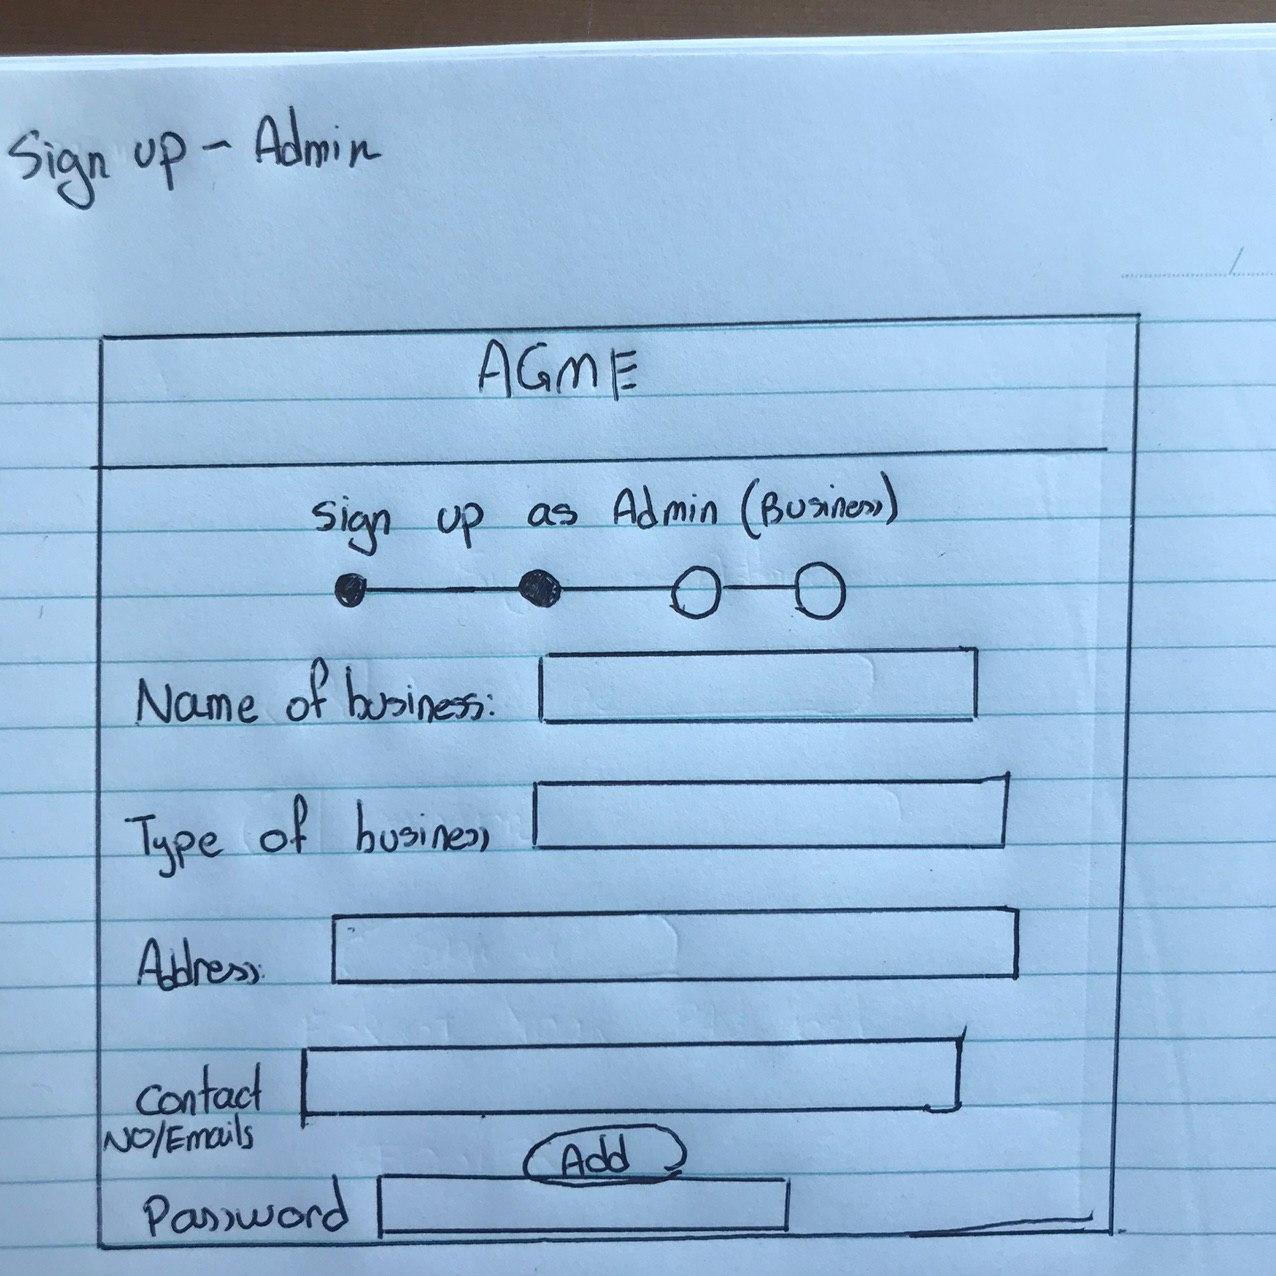 Sign up - Admin
AGME
Sign up as Admin (Business)
Name of business:
Type of business
Address:
Contact
NO/Emails
Add
Password